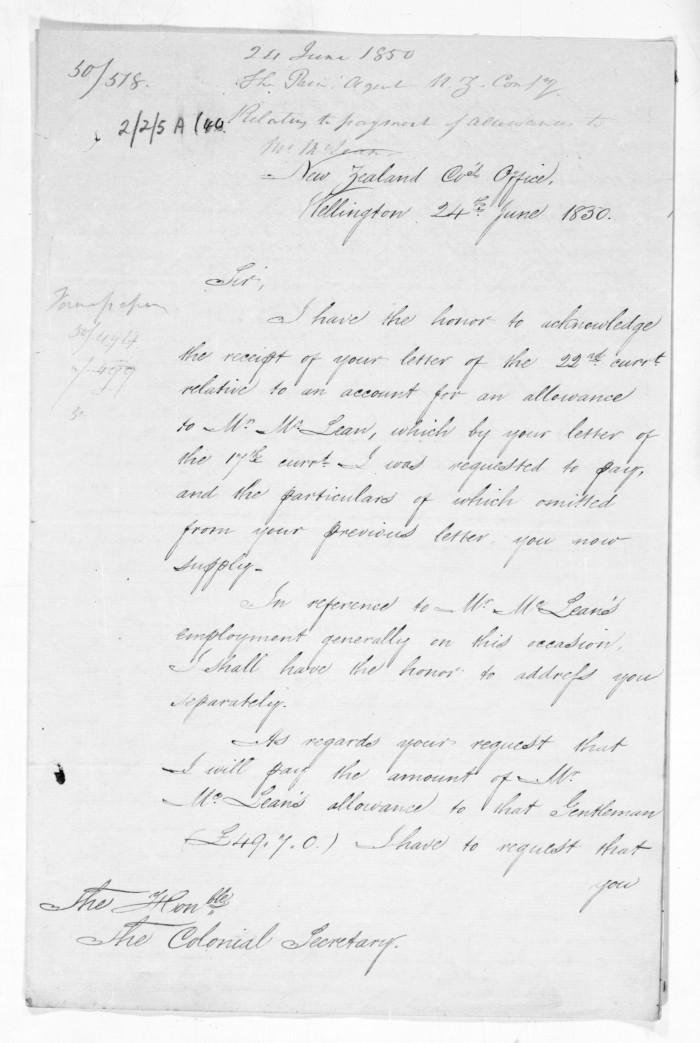 50/518.
24 June 1850
The Prin: Agent N. Z. Comp'y
2/2/5 A (40
Relating to payment of allowances to
Mr McLean.
New Zealand Co's Office,
Wellington 24th June 1850.
Sir,
I have the honor to acknowledge
the receipt of your letter of the 22nd currt
relative to an account for an allowance
to Mr McLean, which by your letter of
the 17th currt I was requested to pay,
and the particulars of which omitted
from your previous letter you now
supply.
In reference to Mr McLean's
employment generally on this occasion,
I shall have the honor to address you
separately.
As regards your request that
I will pay the amount of Mr
McLean's allowance to that Gentleman
(£49.7.0.) I have to request that
you
The Honble
The Colonial Secretary.
50/494